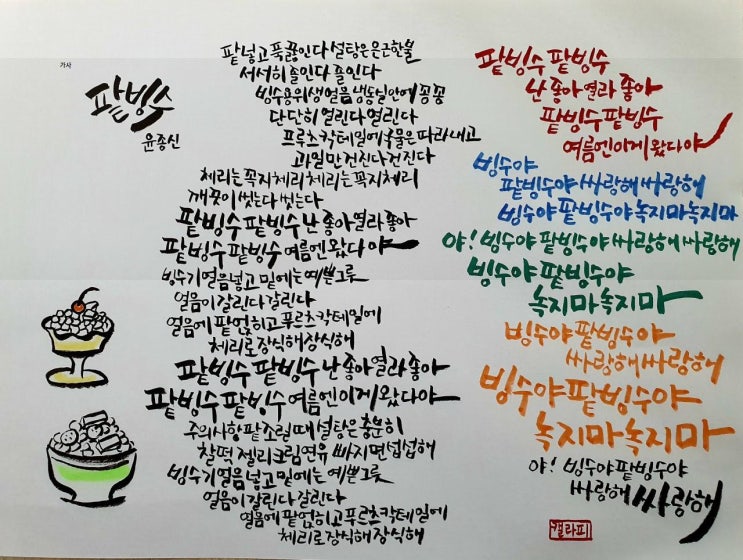 가사
팥빙수
윤종신
팥넣고 푹끓인다 설탕은은근한불
서서히졸인다졸인다
빙수용위생얼음냉동실안에꽁꽁
단단히얼린다얼린다
프루츠칵테일에국물은따라내고
과일만건진다건진다
체리는꼭지체리체리는꼭지체리
깨끗이씻는다씻는다
팥빙수팥빙수난좋아열라좋아
팥빙수팥빙수여름엔왔다야
빙수기얼음넣고밑에는예쁜그릇
얼음이갈린다갈린다
얼음에팥얹히고푸르츠칵테일에
체리로장식해장식해
팥빙수팥빙수난좋아열라좋아
팥빙수팥빙수여름엔이게왔다야
주의사항팥조릴때설탕은충분히
찰떡젤리크림연유빠지면섭섭해
빙수기얼음넣고밑에는예쁜그릇
얼음이갈린다갈린다
얼음에팥얹히고푸르츠칵테일에
체리로장식해장식해
팥빙수팥빙수
난좋아열라좋아
팥빙수팥빙수
여름엔이게왔다야
빙수야
팥빙수야싸랑해싸랑해
빙수야팥빙수야녹지마녹지마
야!빙수야팥빙수야싸랑해싸랑해
빙수야팥빙수야
녹지마녹지마
빙수야팥빙수야
싸랑해싸랑해
빙수야팥빙수야
녹지마녹지마
야! 빙수야팥빙수야
싸랑해싸랑해
캘라피